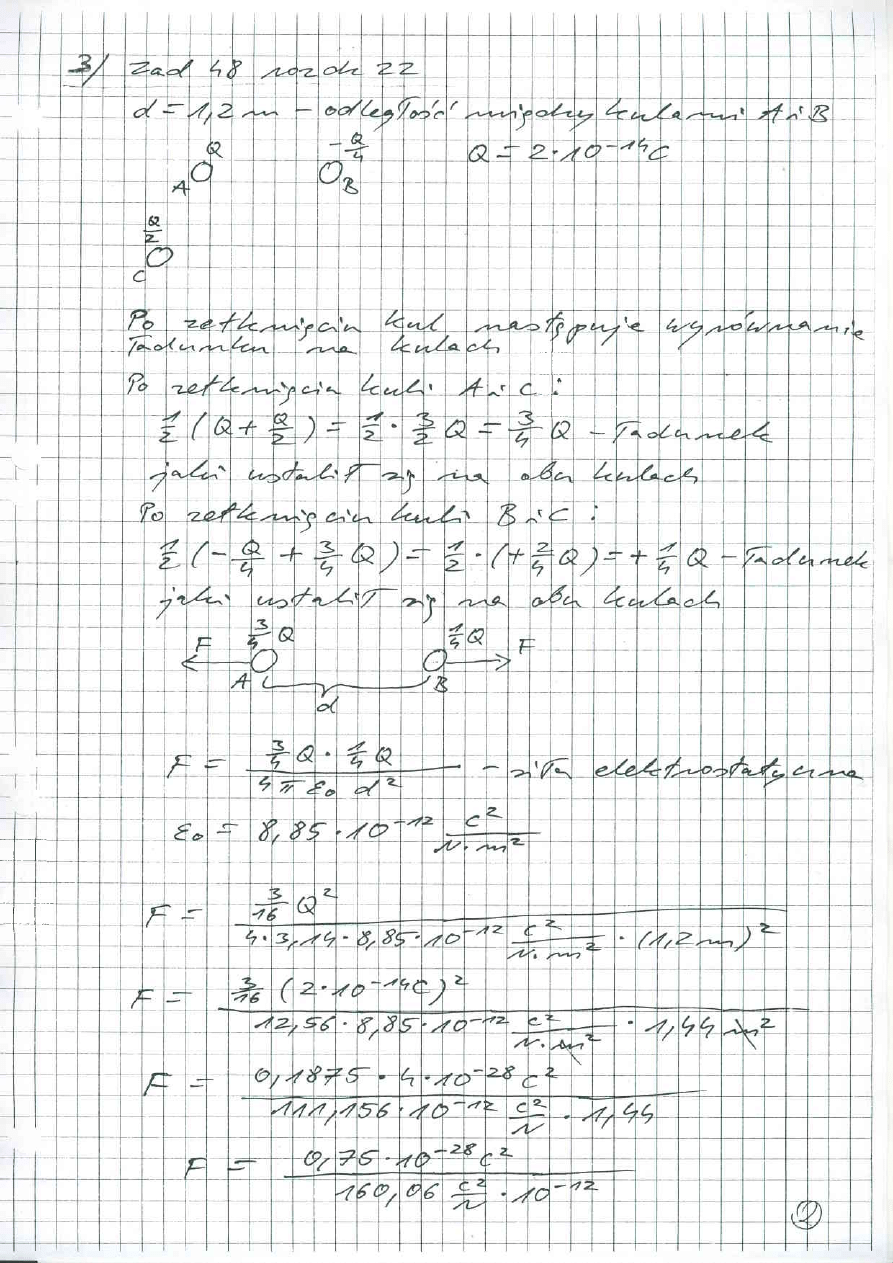 3/ Zad 48 rozdz 22
d = 1,2 m – odległość między kulami A i B
Q    -Q/4    Q = 2·10⁻¹⁴C
A    B
Q/2
C
Po zetknięciu kul następuje wyrównanie
ładunku na kulach
Po zetknięciu kuli A i C :
1/2 (Q + Q/2) = 1/2 · 3/2 Q = 3/4 Q – ładunek
jaki ustalił się na obu kulach
Po zetknięciu kuli B i C :
1/2 (-Q/4 + 3/4 Q) = 1/2 · (+2/4 Q) = + 1/4 Q – ładunek
jaki ustalił się na obu kulach
F    3/4 Q    1/4 Q    F
A    B
d
F = (3/4 Q · 1/4 Q)/(4 π ε₀ d²) – siła elektrostatyczna
ε₀ = 8,85 · 10⁻¹² C²/(N·m²)
F = (3/16 Q²)/(4·3,14·8,85·10⁻¹² C²/(N·m²) · (1,2 m)²)
F = (3/16 (2·10⁻¹⁴C)²)/(12,56·8,85·10⁻¹² C²/(N·m²) · 1,44 m²)
F = (0,1875 · 4·10⁻²⁸ C²)/(111,156·10⁻¹² C²/N · 1,44)
F = (0,75·10⁻²⁸ C²)/(160,06 C²/N · 10⁻¹²)
2